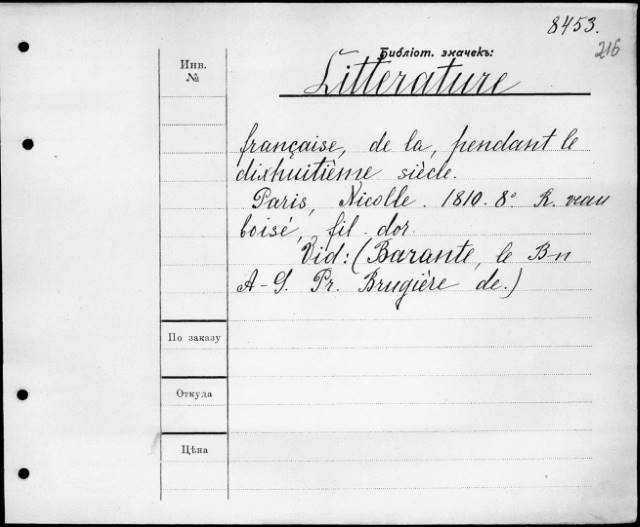 8453.
216
Библіот. значекъ:
Litterature
Инв.
№
française, de la, pendant le
dixhuitième siècle.
Paris, Nicolle. 1810. 8° R. veau
boisé, fil. dor.
Vid: (Barante, le Bn
A-G. Pr. Brugière de.)
По заказу
Откуда
Цѣна